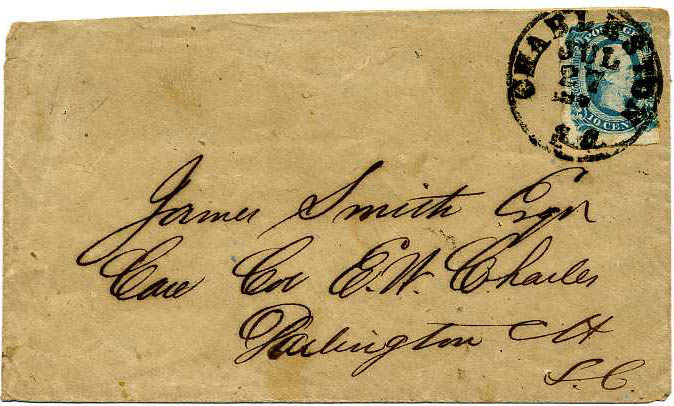 CHARLESTON
JUL
27
S.C.
POSTAGE
10 CEN
James Smith Esqr
Care Col E.W. Charles
Darlington CH
S.C.